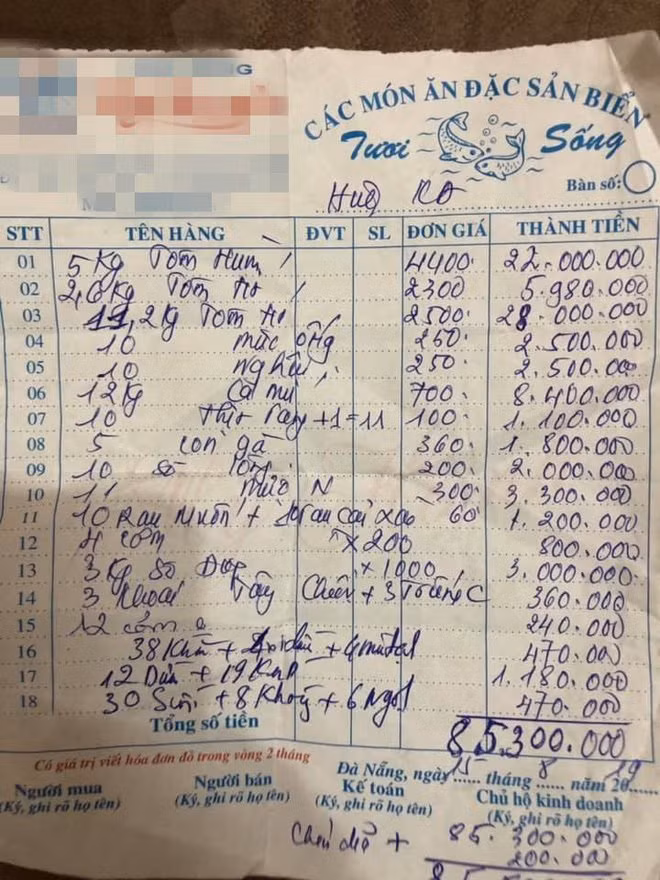 CÁC MÓN ĂN ĐẶC SẢN BIỂN
Tươi Sống
Bàn số:
STT TÊN HÀNG ĐVT SL ĐƠN GIÁ THÀNH TIỀN
01 5 Kg Tôm Hùm 4400 22.000.000
02 2,6 Kg Tôm 2300 5.980.000
03 11,2 Kg Tôm 2500 28.000.000
04 10 mực ống 250 2.500.000
05 10 nghêu 250 2.500.000
06 12 Kg Cá mú 700 8.400.000
07 10 +1=11 100 1.100.000
08 5 con gà 360 1.800.000
09 10 sò 200 2.000.000
10 11 mực N 300 3.300.000
11 10 Rau Muốn + Rau cải xào 60 1.200.000
12 4 cơm x200 800.000
13 3 Kg sò x1000 3.000.000
14 3 Khoai Tây Chiên + 3 Trứng C 360.000
15 12 cơm 240.000
16 38 Khăn + 470.000
17 12 Dừa + 19 1.180.000
18 30 + 8 + 6 470.000
Tổng số tiền 85.300.000
Có giá trị viết hóa đơn đỏ trong vòng 2 tháng
Đà Nẵng, ngày 15 tháng 8 năm 2019
Người mua Người bán Kế toán Chủ hộ kinh doanh
(Ký, ghi rõ họ tên) (Ký, ghi rõ họ tên) (Ký, ghi rõ họ tên) (Ký, ghi rõ họ tên)
+ 85.300.000
200.000